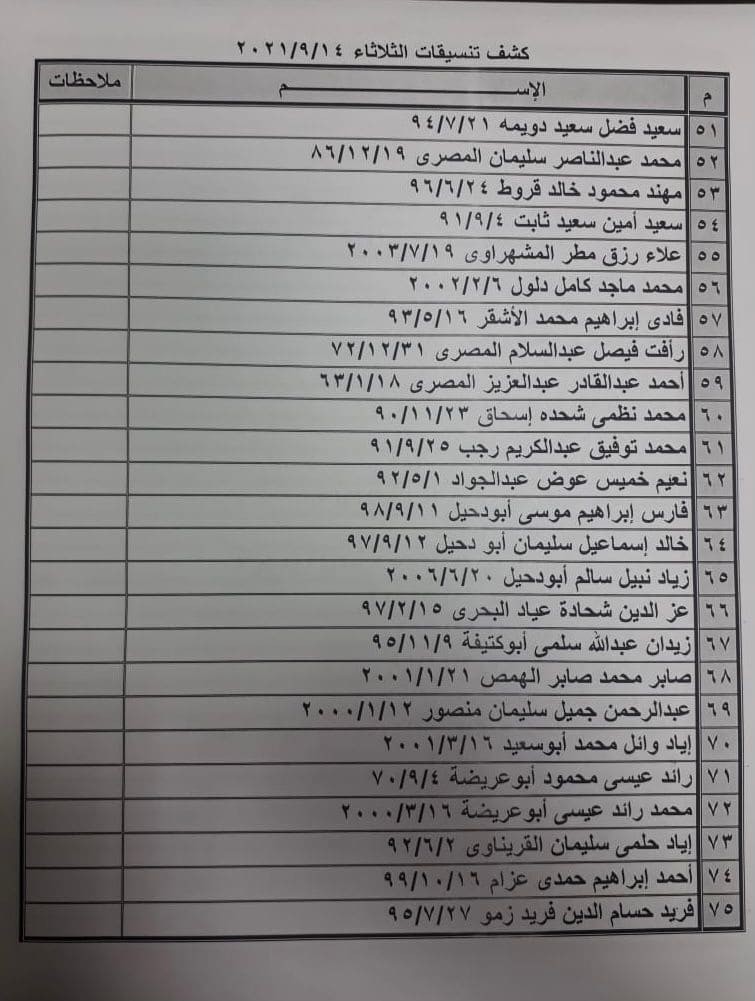 كشف تنسيقات الثلاثاء ٢٠٢١/٩/١٤
م الإســـــم ملاحظات
٥١ سعيد فضل سعيد دويمه ٩٤/٧/٢١
٥٢ محمد عبدالناصر سليمان المصرى ٨٦/١٢/١٩
٥٣ مهند محمود خالد قروط ٩٦/٦/٢٤
٥٤ سعيد أمين سعيد ثابت ٩١/٩/٤
٥٥ علاء رزق مطر المشهراوى ٢٠٠٣/٧/١٩
٥٦ محمد ماجد كامل دلول ٢٠٠٢/٢/٦
٥٧ فادى إبراهيم محمد الأشقر ٩٣/٥/١٦
٥٨ رأفت فيصل عبدالسلام المصرى ٧٢/١٢/٣١
٥٩ أحمد عبدالقادر عبدالعزيز المصرى ٦٣/١/١٨
٦٠ محمد نظمى شحده إسحاق ٩٠/١١/٢٣
٦١ محمد توفيق عبدالكريم رجب ٩١/٩/٢٥
٦٢ نعيم خميس عوض عبدالجواد ٩٢/٥/١
٦٣ فارس إبراهيم موسى أبودحيل ٩٨/٩/١١
٦٤ خالد إسماعيل سليمان أبو دحيل ٩٧/٩/١٢
٦٥ زياد نبيل سالم أبودحيل ٢٠٠٦/٦/٢٠
٦٦ عز الدين شحادة عياد البحرى ٩٧/٢/١٥
٦٧ زيدان عبدالله سلمى أبوكتيفة ٩٥/١١/٩
٦٨ صابر محمد صابر الهمص ٢٠٠١/١/٢١
٦٩ عبدالرحمن جميل سليمان منصور ٢٠٠٠/١/١٢
٧٠ إياد وائل محمد أبوسعيد ٢٠٠١/٣/١٦
٧١ رائد عيسى محمود أبوعريضة ٧٠/٩/٤
٧٢ محمد رائد عيسى أبوعريضة ٢٠٠٠/٣/١٦
٧٣ إياد حلمى سليمان القريناوى ٩٢/٦/٢
٧٤ أحمد إبراهيم حمدى عزام ٩٩/١٠/١٦
٧٥ فريد حسام الدين فريد زمو ٩٥/٧/٢٧